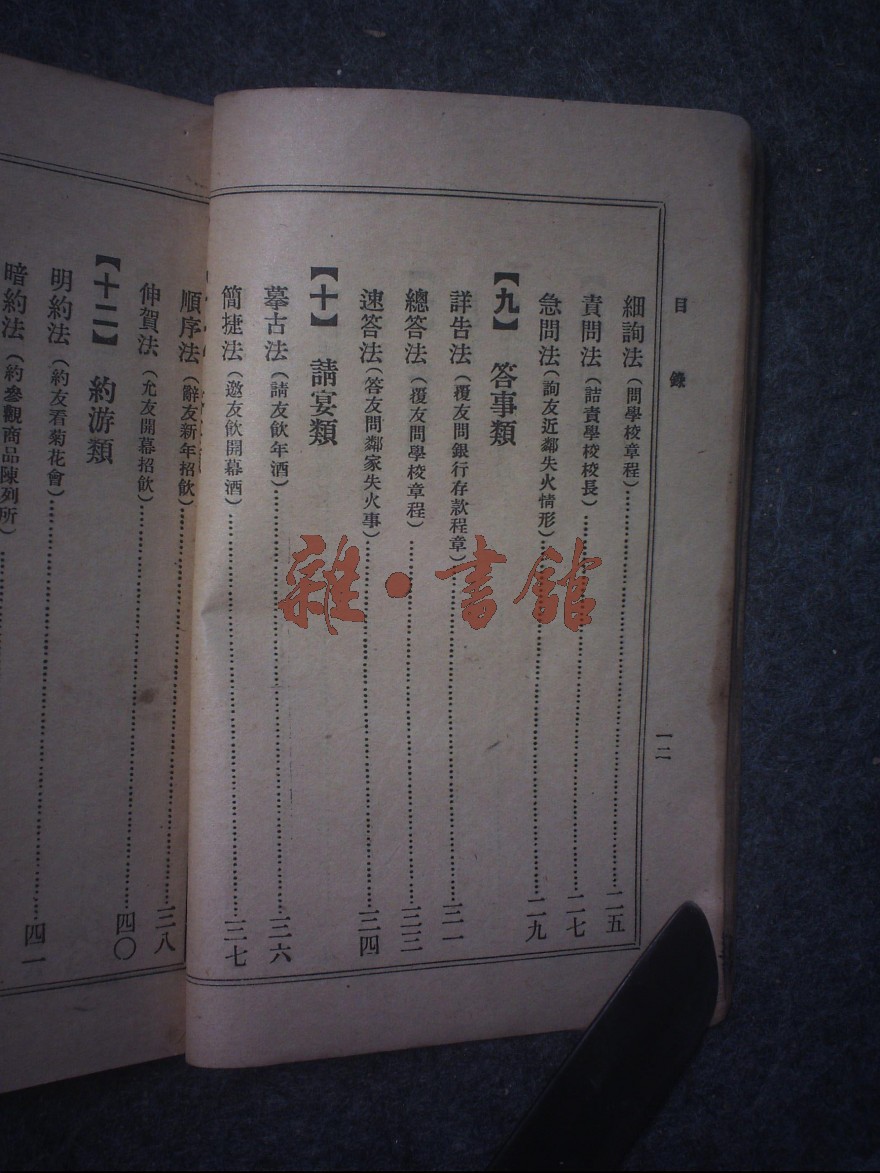 目錄
一二
細詢法（問學校章程）……二五
責問法（詰責學校校長）……二七
急問法（詢友近鄰失火情形）……二九
【九】 答事類
詳告法（覆友問銀行存款程章）……三一
總答法（覆友問學校章程）……三三
速答法（答友問鄰家失火事）……三四
【十】 請宴類
摹古法（請友飲年酒）……三六
簡捷法（邀友飲開幕酒）……三七
順序法（辭友新年招飲）……三八
伸賀法（允友開幕招飲）……四〇
【十二】 約游類
明約法（約友看菊花會）……四一
暗約法（約參觀商品陳列所）……
雜·書館